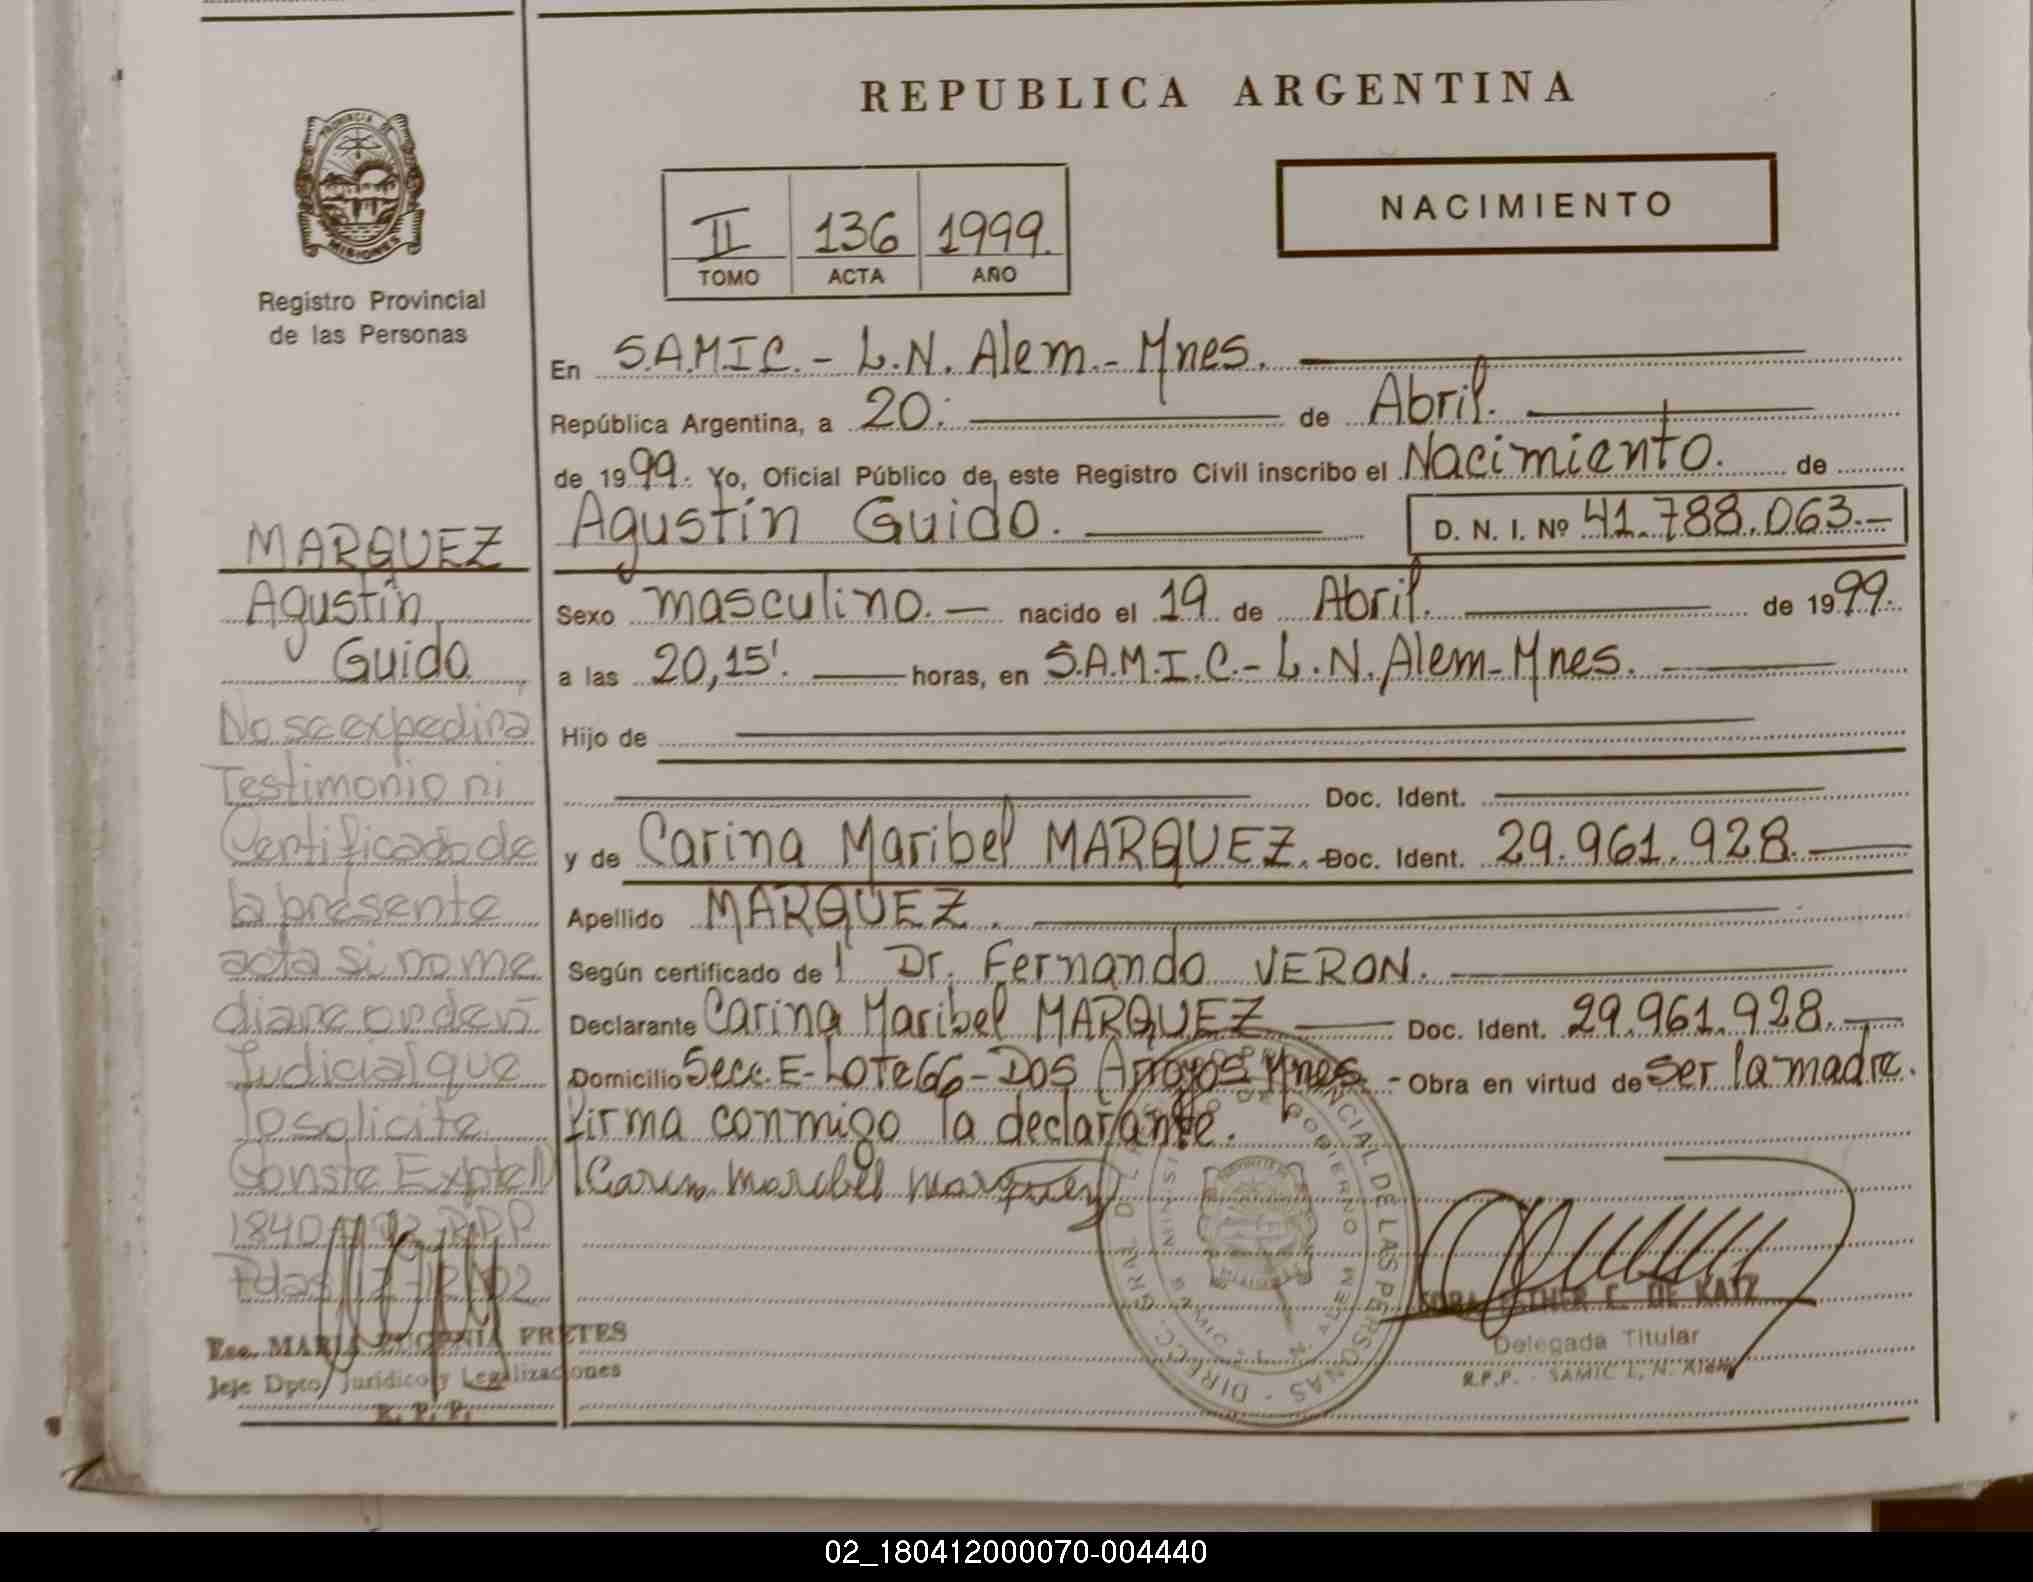 REPUBLICA ARGENTINA
PROVINCIA DE
MISIONES
Registro Provincial
de las Personas
II 136 1999.
TOMO ACTA AÑO
NACIMIENTO
En S.A.M.I.C.- L.N. Alem.- Mnes.
República Argentina, a 20. de Abril.
de 1999. Yo, Oficial Público de este Registro Civil inscribo el Nacimiento. de
Agustín Guido. D. N. I. Nº 41.788.063.-
Sexo masculino. nacido el 19 de Abril. de 1999.
a las 20,15'. horas, en S.A.M.I.C.- L.N. Alem- Mnes.
Hijo de
Doc. Ident.
y de Carina Maribel MARQUEZ. Doc. Ident. 29.961.928.
Apellido MARQUEZ.
Según certificado de l Dr. Fernando VERON.
Declarante Carina Maribel MARQUEZ Doc. Ident. 29.961.928.
Domicilio Secc. E- Lote 66- Dos Arroyos Mnes. - Obra en virtud de ser la madre.
firma conmigo la declarante.
MARQUEZ
Agustín
Guido
No se expedira
Testimonio ni
Certificado de
la presente
acta si no me
diare orden
Judicial que
lo solicite
Conste Expte
1840 RPP
Pdas
Esc. MARIA EUGENIA FRETES
Jefe Dpto. Jurídico y Legalizaciones
R. P. P.
ESTHER E. DE KATZ
Delegada Titular
R.P.P. - SAMIC L. N. Alem
02_180412000070-004440